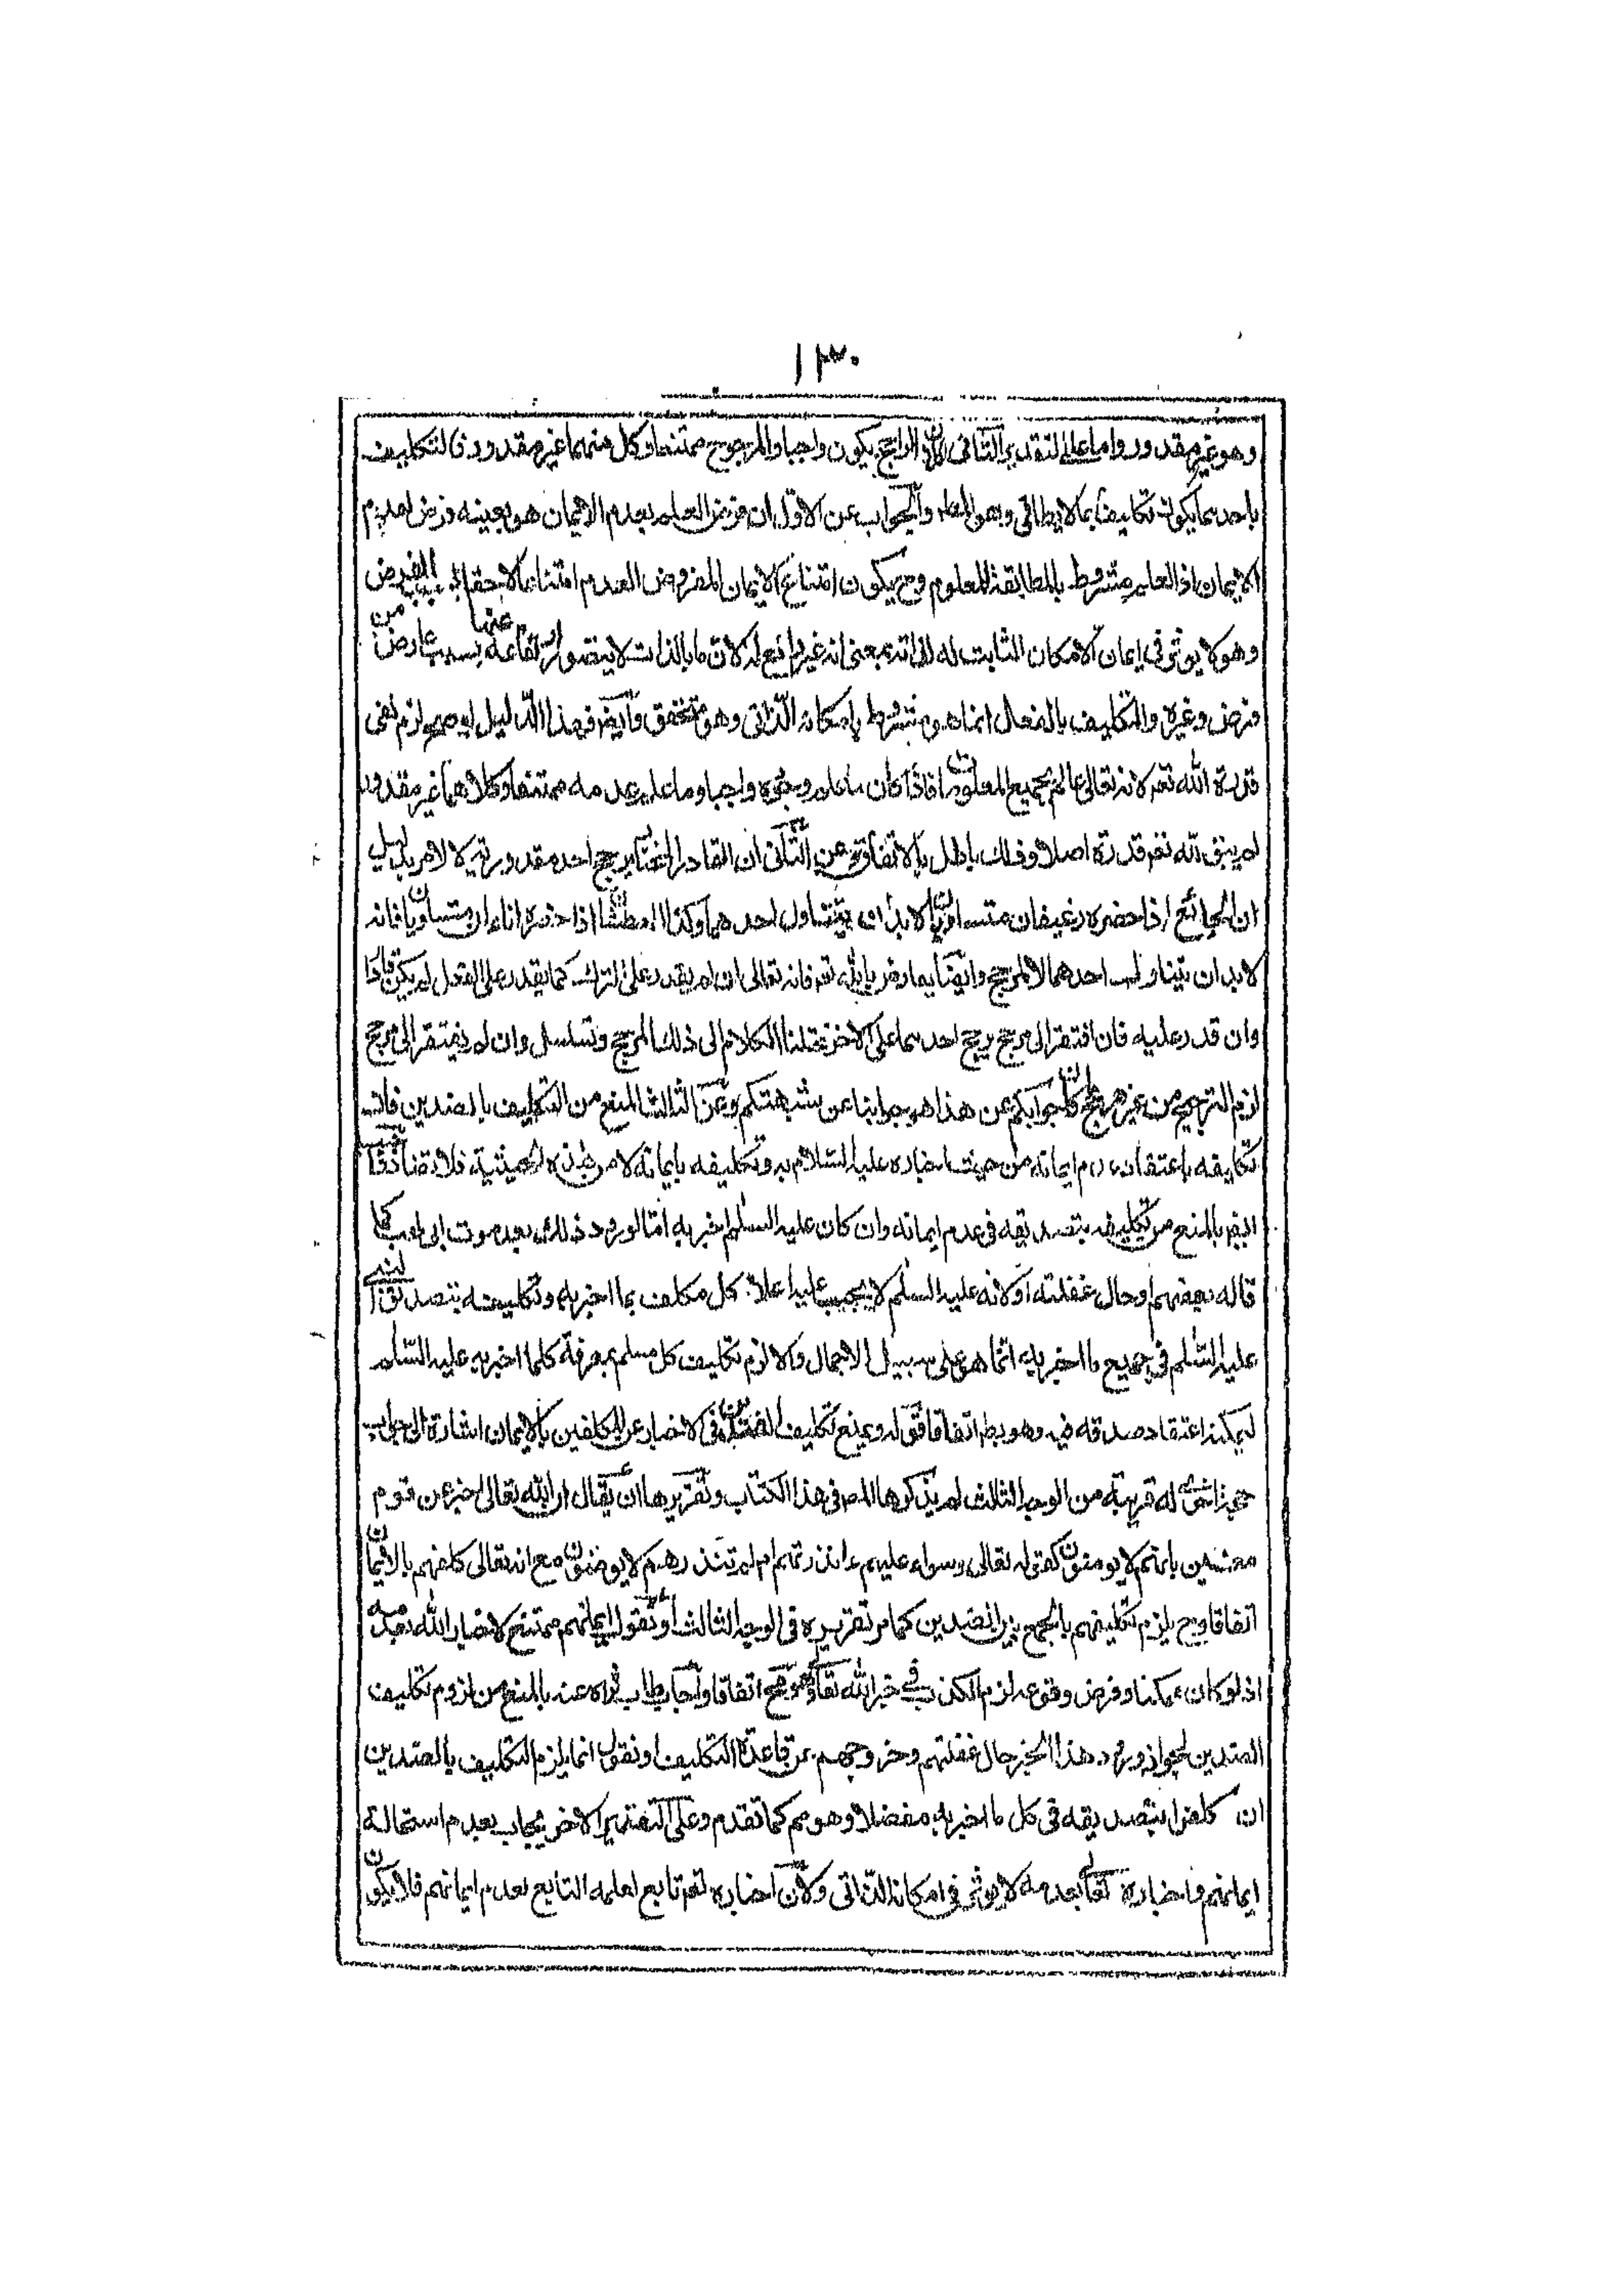 ١٣٠
وهو غير مقدور واما على التقدير الثانى فلان الراجح يكون واجبا والمرجوح ممتنعا وكل منهما غير مقدور فالتكليف
باحدهما يكون تكليفا بما لا يطاق وهو المط والجواب عن الاول ان فرض العلم بعدم الايمان هو بعينه فرض لعدم
الايمان اذ العلم مشروط بالمطابقة للمعلوم وح يكون امتناع الايمان المفروض العدم امتناعا لاحقا بسبب الفرض
وهو لا يوثر فى ايمان الامكان الثابت له لذاته بمعنى انه غير رافع له لان ما بالذات لا يتصور ارتفاعه بسبب عارض من
فرض وغيره والتكليف بالفعل انما هو مشروط بامكانه الذاتى وهو متحقق وايض فهذا الدليل لو صح لزم نفى
قدرة الله تعم لانه تعالى عالم بجميع المعلومات فاذا كان ما علم وجوده واجبا وما علم عدمه ممتنعا وكلاهما غير مقدور
لم يبق لله تعم قدرة اصلا وذلك باطل بالاتفاق وعن الثانى ان القادر المختار يرجح احد مقدوريه لا لامر بدليل
ان الجائع اذا حضره رغيفان متساويان لا بد ان يتناول احدهما وكذا العطشان اذا حضره اناءان متساويان فانه
لا بد ان يتناول احدهما لا لمرجح وايضا يعارض بالله تعم فانه تعالى ان لم يقدر على الترك كما يقدر على الفعل لم يكن قادرا
وان قدر عليه فان افتقر الى مرجح يرجح احدهما على الاخر نقلنا الكلام الى ذلك المرجح وتسلسل وان لم يفتقر الى مرجح
لزم الترجيح من غير مرجح فما كان جوابكم عن هذا هو جوابنا عن شبهتكم وعن الثالث المنع من التكليف بالضدين فان
تكليفه باعتقاد عدم ايمانه من حيث اخباره عليه السلام به وتكليفه بايمانه لا من هذه الحيثية فلا تضاد
ايض بالمنع من تكليفه بتصديقه فى عدم ايمانه وان كان عليه السلم اخبر به اما لورود ذلك بعد موت ابى لهب كما
قاله بعضهم او حال غفلته او لانه عليه السلم لا يجب عليه اعلام كل مكلف بما اخبر به وتكليفه بتصديق النبى
عليه السلم فى جميع ما اخبر به انما هو على سبيل الاجمال والا لزم تكليف كل مسلم بمعرفة كلما اخبر به عليه السلم
ليمكنه اعتقاد صدقه فيه وهو بط اتفاقا فقوله ويمنع تكليف الضدين فى الاخبار عن المكلفين بالايمان اشارة الى جواب
حجة اخرى له قريبة من الوجه الثالث لم يذكرها المص فى هذا الكتاب وتقريرها ان يقال ان الله تعالى اخبر عن قوم
معينين بانهم لا يومنون كقوله تعالى وسواء عليهم ءانذرتهم ام لم تنذرهم لا يومنون مع انه تعالى كلفهم بالايمان
اتفاقا وح يلزم تكليفهم بالجمع بين الضدين كما مر تقريره فى الوجه الثالث او نقول ايمانهم ممتنع لاخبار الله بعدمه
اذ لو كان ممكنا وفرض وقوعه لزم الكذب فى خبر الله تعالى وهو مح اتفاقا واجاب طاب ثراه عنه بالمنع من لزوم تكليف
الضدين لجواز ورود هذا الخبر حال غفلتهم وخروجهم عن قاعدة التكليف او نقول انما يلزم التكليف بالضدين
ان كلفوا بتصديقه فى كل ما اخبر به مفصلا وهو مم كما تقدم وعلى التقدير الاخر يجاب بعدم استحالة
ايمانهم واخباره تعالى بعدمه لا يوثر فى امكانه الذاتى ولان اخباره تعم تابع لعلمه التابع لعدم ايمانهم فلا يكون